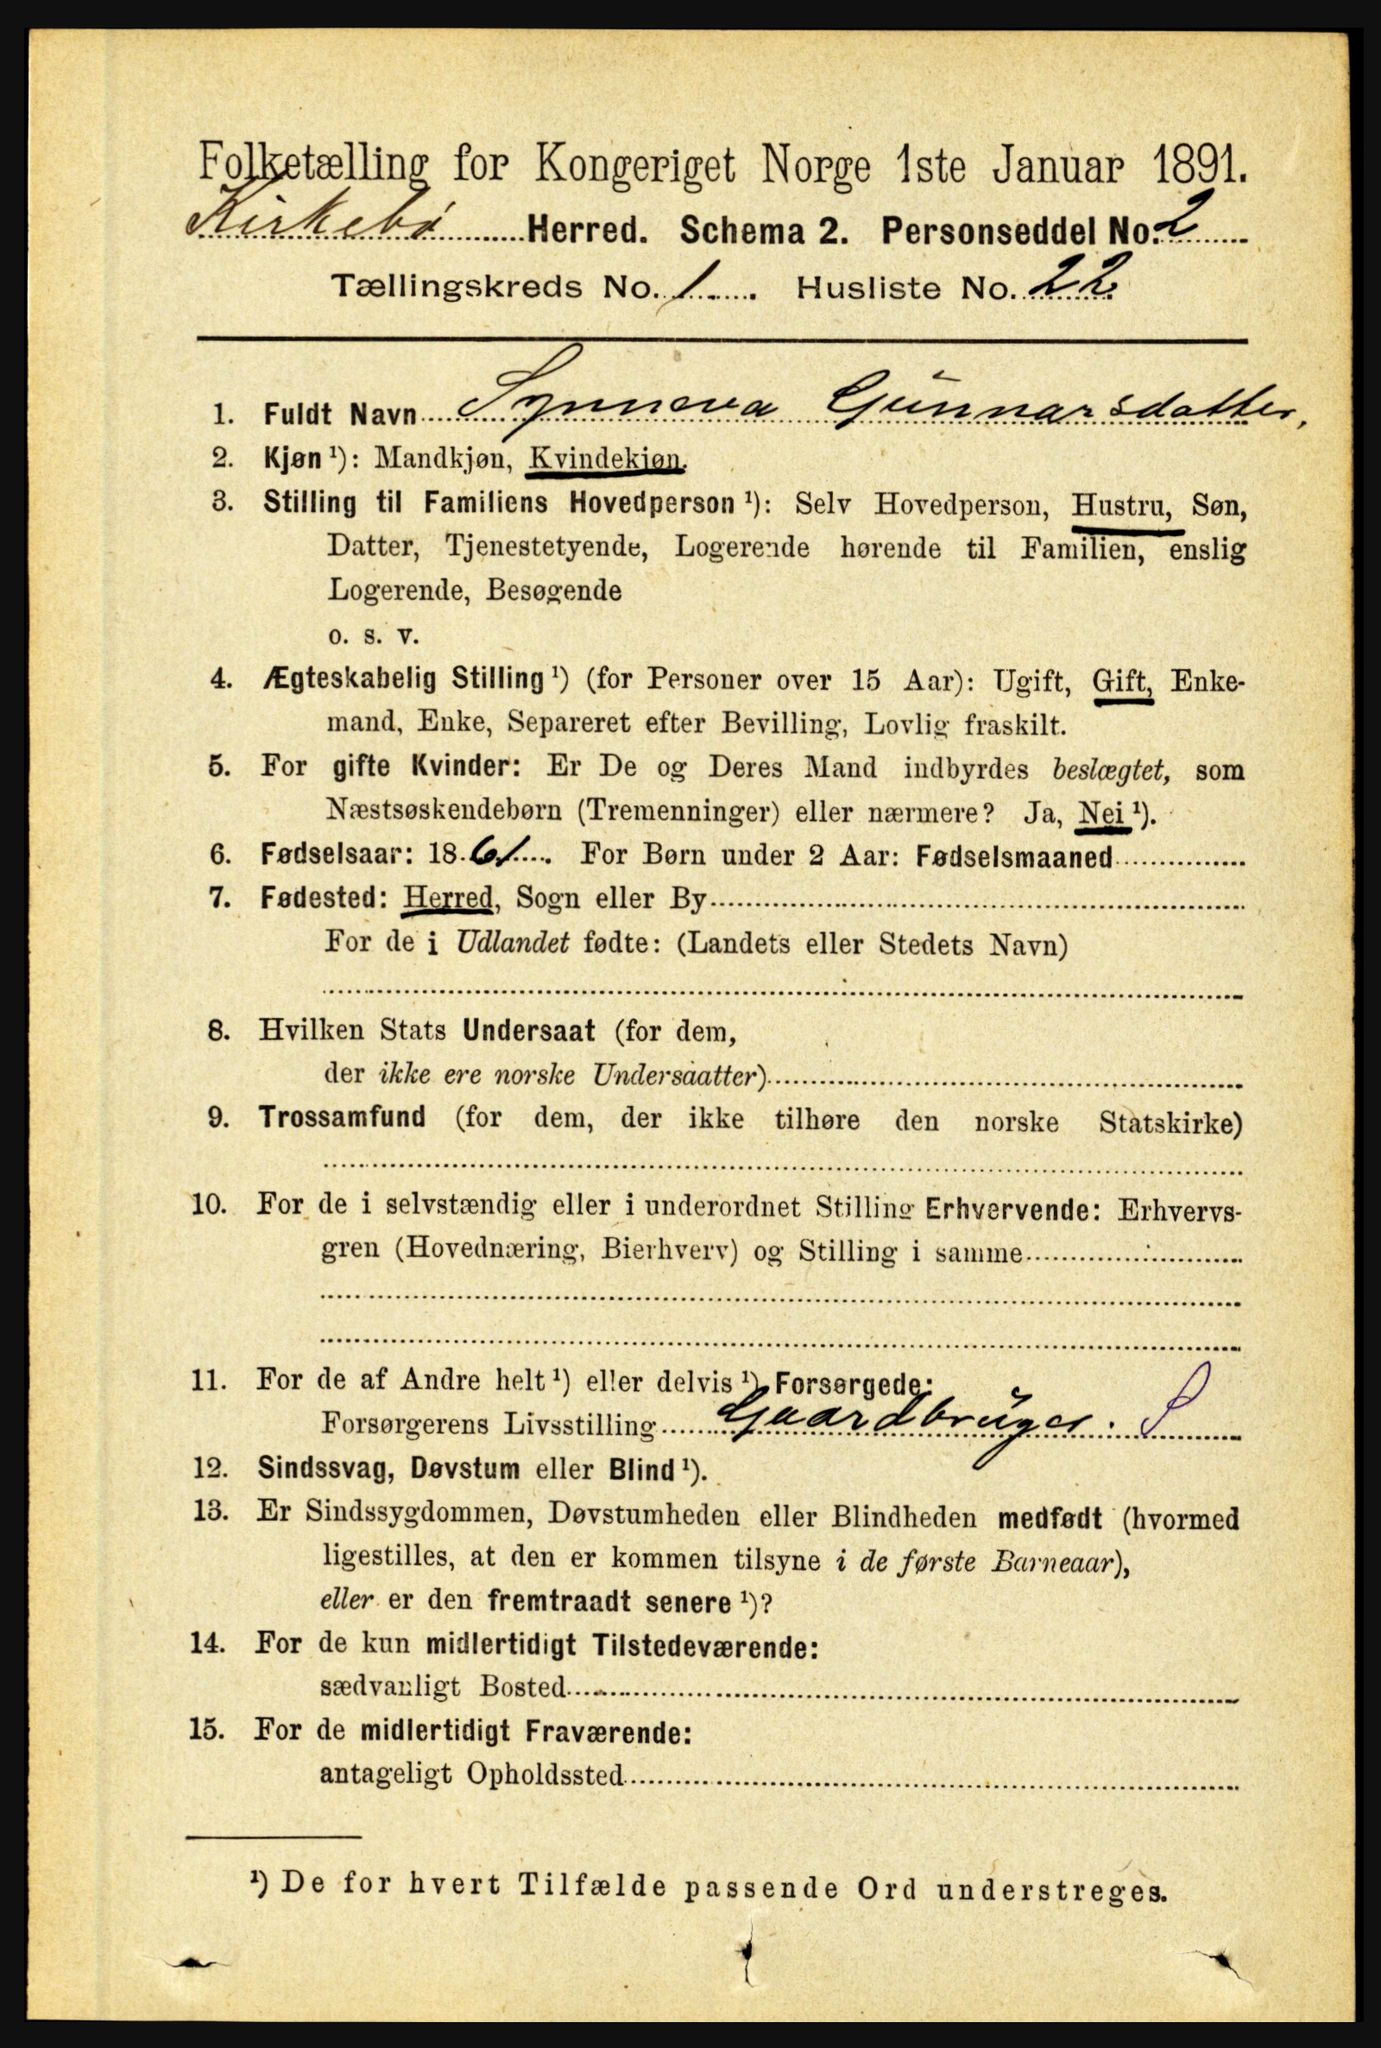 Folketælling for Kongeriget Norge 1ste Januar 1891.
Kirkebø Herred. Schema 2. Personseddel No. 2
Tællingskreds No. 1. Husliste No. 22.
1. Fuldt Navn Synneva Gunnarsdatter,
2. Kjøn ¹): Mandkjøn, Kvindekjøn.
3. Stilling til Familiens Hovedperson ¹): Selv Hovedperson, Hustru, Søn,
Datter, Tjenestetyende, Logerende hørende til Familien, enslig
Logerende, Besøgende
o. s. v.
4. Ægteskabelig Stilling ¹) (for Personer over 15 Aar): Ugift, Gift, Enke-
mand, Enke, Separeret efter Bevilling, Lovlig fraskilt.
5. For gifte Kvinder: Er De og Deres Mand indbyrdes beslægtet, som
Næstsøskendebørn (Tremenninger) eller nærmere? Ja, Nei ¹).
6. Fødselsaar: 1861. For Børn under 2 Aar: Fødselsmaaned
7. Fødested: Herred, Sogn eller By
For de i Udlandet fødte: (Landets eller Stedets Navn)
8. Hvilken Stats Undersaat (for dem,
der ikke ere norske Undersaatter)
9. Trossamfund (for dem, der ikke tilhøre den norske Statskirke)
10. For de i selvstændig eller i underordnet Stilling Erhvervende: Erhvervs-
gren (Hovednæring, Bierhverv) og Stilling i samme
11. For de af Andre helt ¹) eller delvis ¹) Forsørgede:
Forsørgerens Livsstilling Gaardbruger. S
12. Sindssvag, Døvstum eller Blind ¹).
13. Er Sindssygdommen, Døvstumheden eller Blindheden medfødt (hvormed
ligestilles, at den er kommen tilsyne i de første Barneaar),
eller er den fremtraadt senere ¹)?
14. For de kun midlertidigt Tilstedeværende:
sædvanligt Bosted
15. For de midlertidigt Fraværende:
antageligt Opholdssted
¹) De for hvert Tilfælde passende Ord understreges.